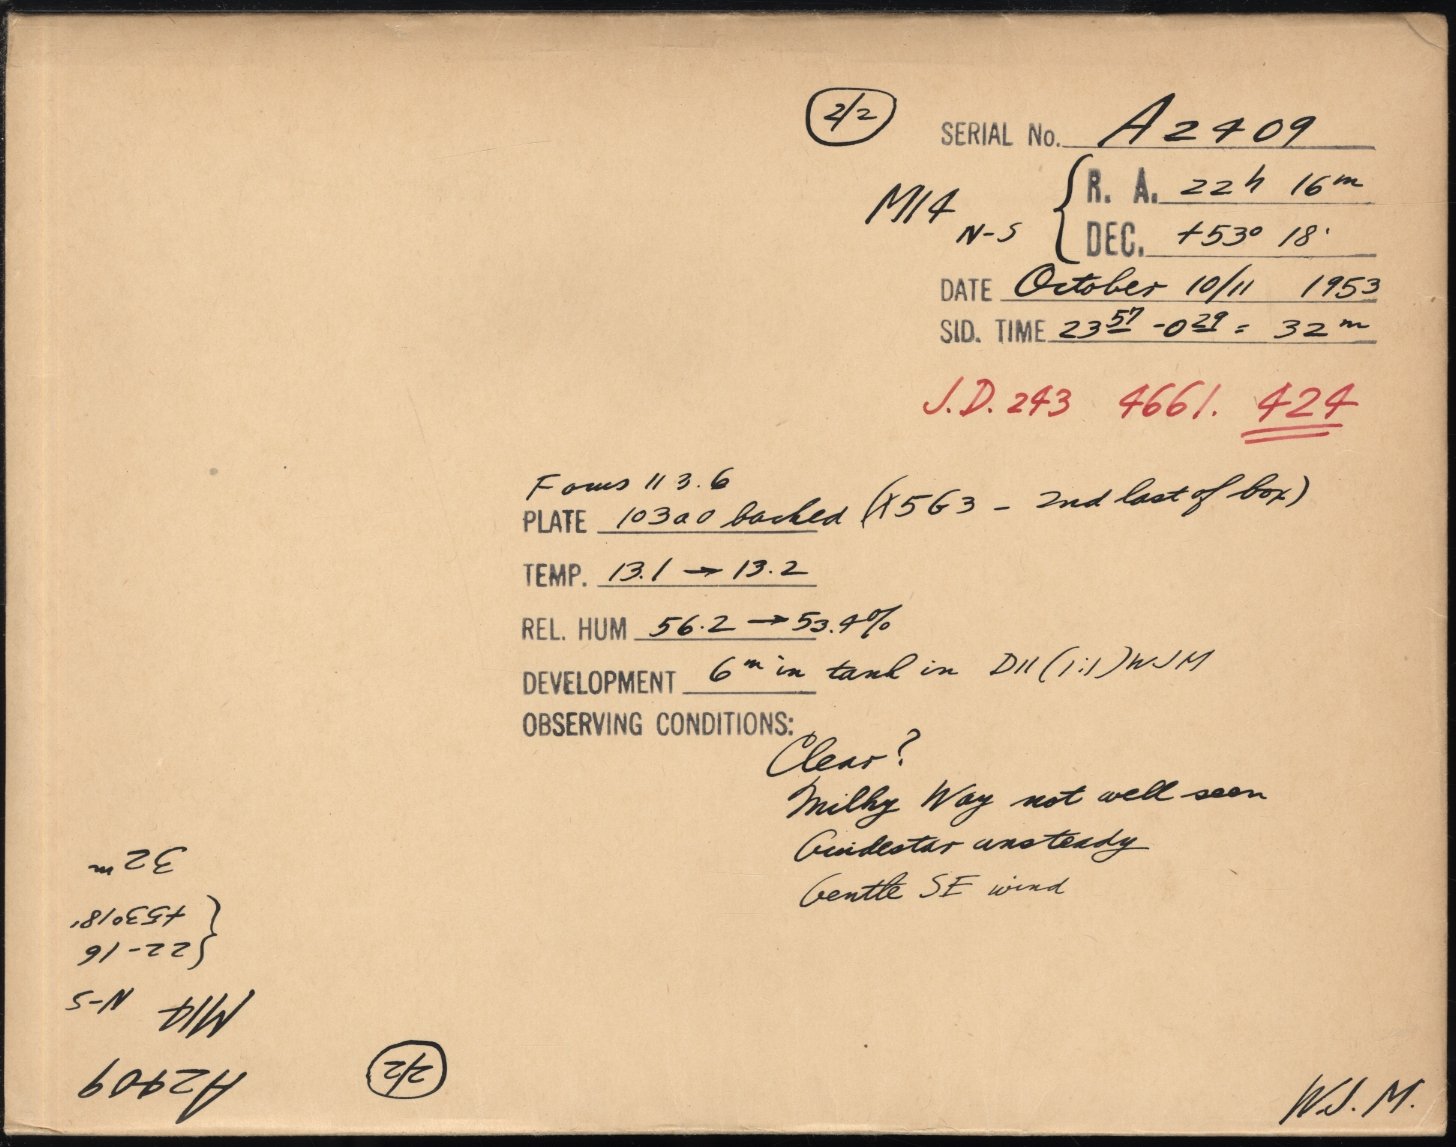 2/2
SERIAL No. A2409
M14 N-S { R. A. 22h 16m
DEC. +53° 18'
DATE October 10/11 1953
SID. TIME 23 57 - 0 29 = 32 m
J.D. 243 4661. 424
Focus 113.6
PLATE 103a0 backed (X5G3 - 2nd last of box)
TEMP. 13.1 → 13.2
REL. HUM 56.2 → 53.4%
DEVELOPMENT 6 m in tank in D11 (1:1) WJM
OBSERVING CONDITIONS:
Clear?
Milky Way not well seen
Guidestar unsteady
Gentle SE wind
W.J.M.
2/2
A2409
M14 N-S
{ 22-16
+53°18'
32m